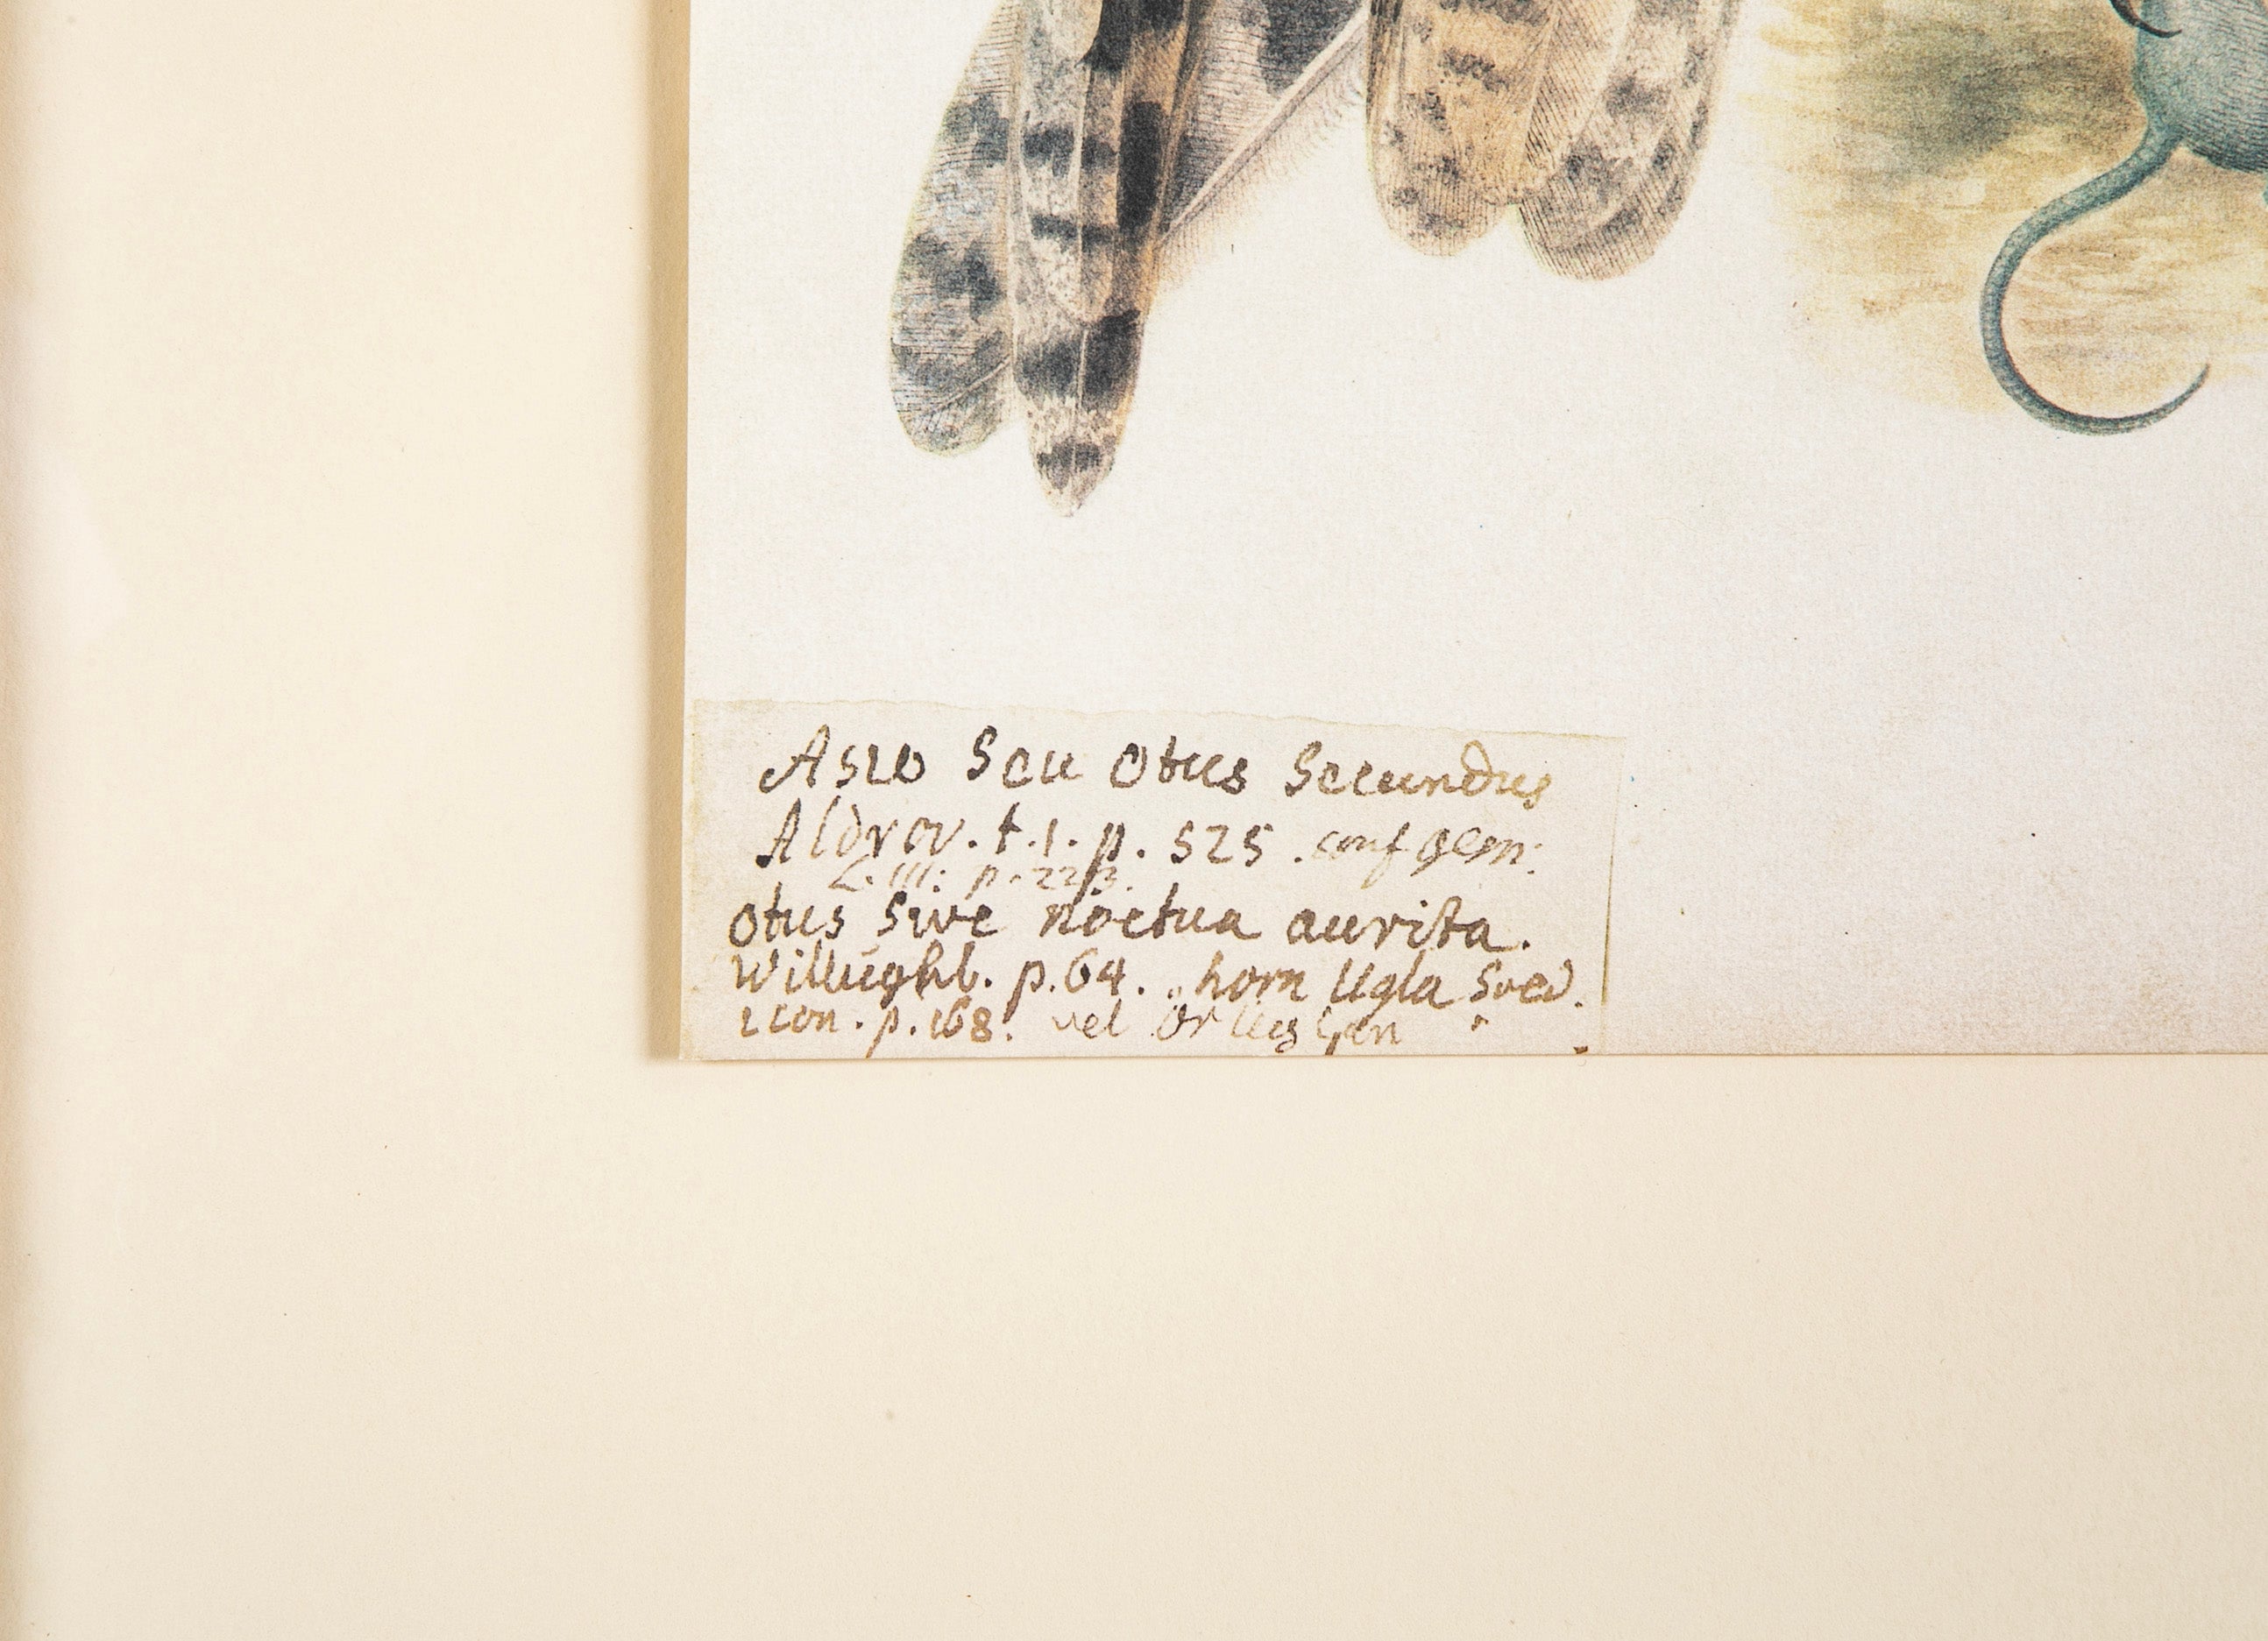 Asio Seu Otus Secundus
Aldrov. t. 1. p. 525. conf gesn:
L. III. p. 223.
Otus Sive noctua aurita.
Willughb. p. 64. horn Ugla Sved.
icon. p. 168. vel